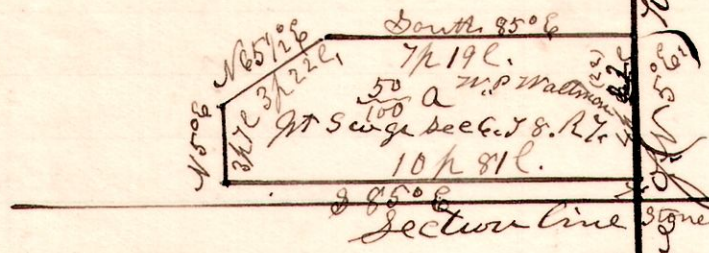 South 85° E
7p 19l.
N 65 1/2 E
3p 22l,
50/100 a
W. P. Waltmon
N 5° E
3p 7l
Sec 6. T 8. R 7.
10 p 81 l.
S 85° E
N 5° E,
Section line
Stone